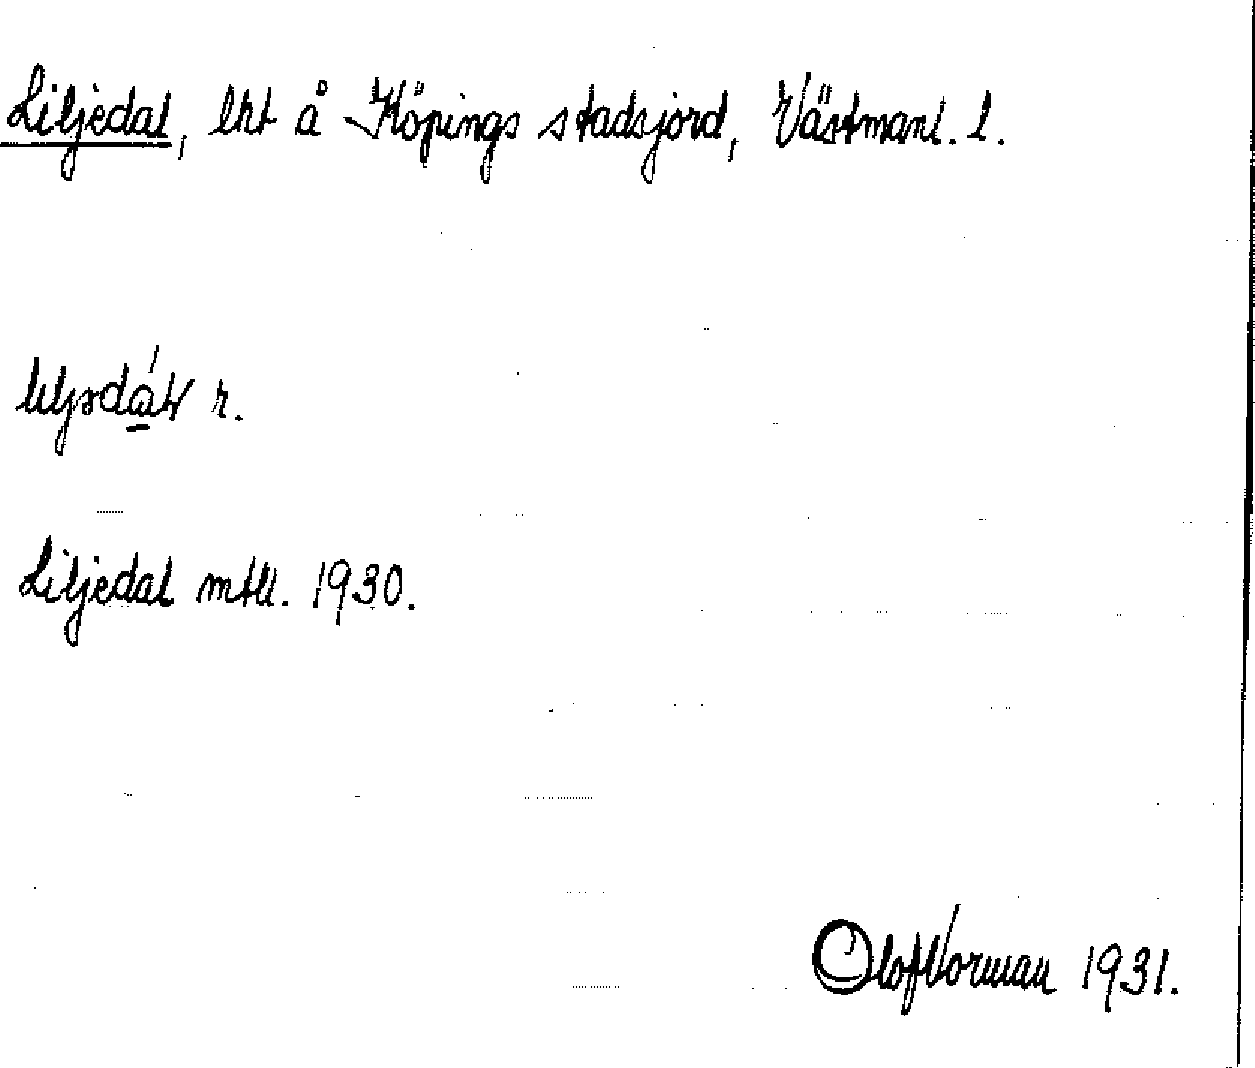 Liljedal, lht å Köpings stadsjord, Västmanl. l.
r.
Liljedal mtll. 1930.
Olof Vorman 1931.